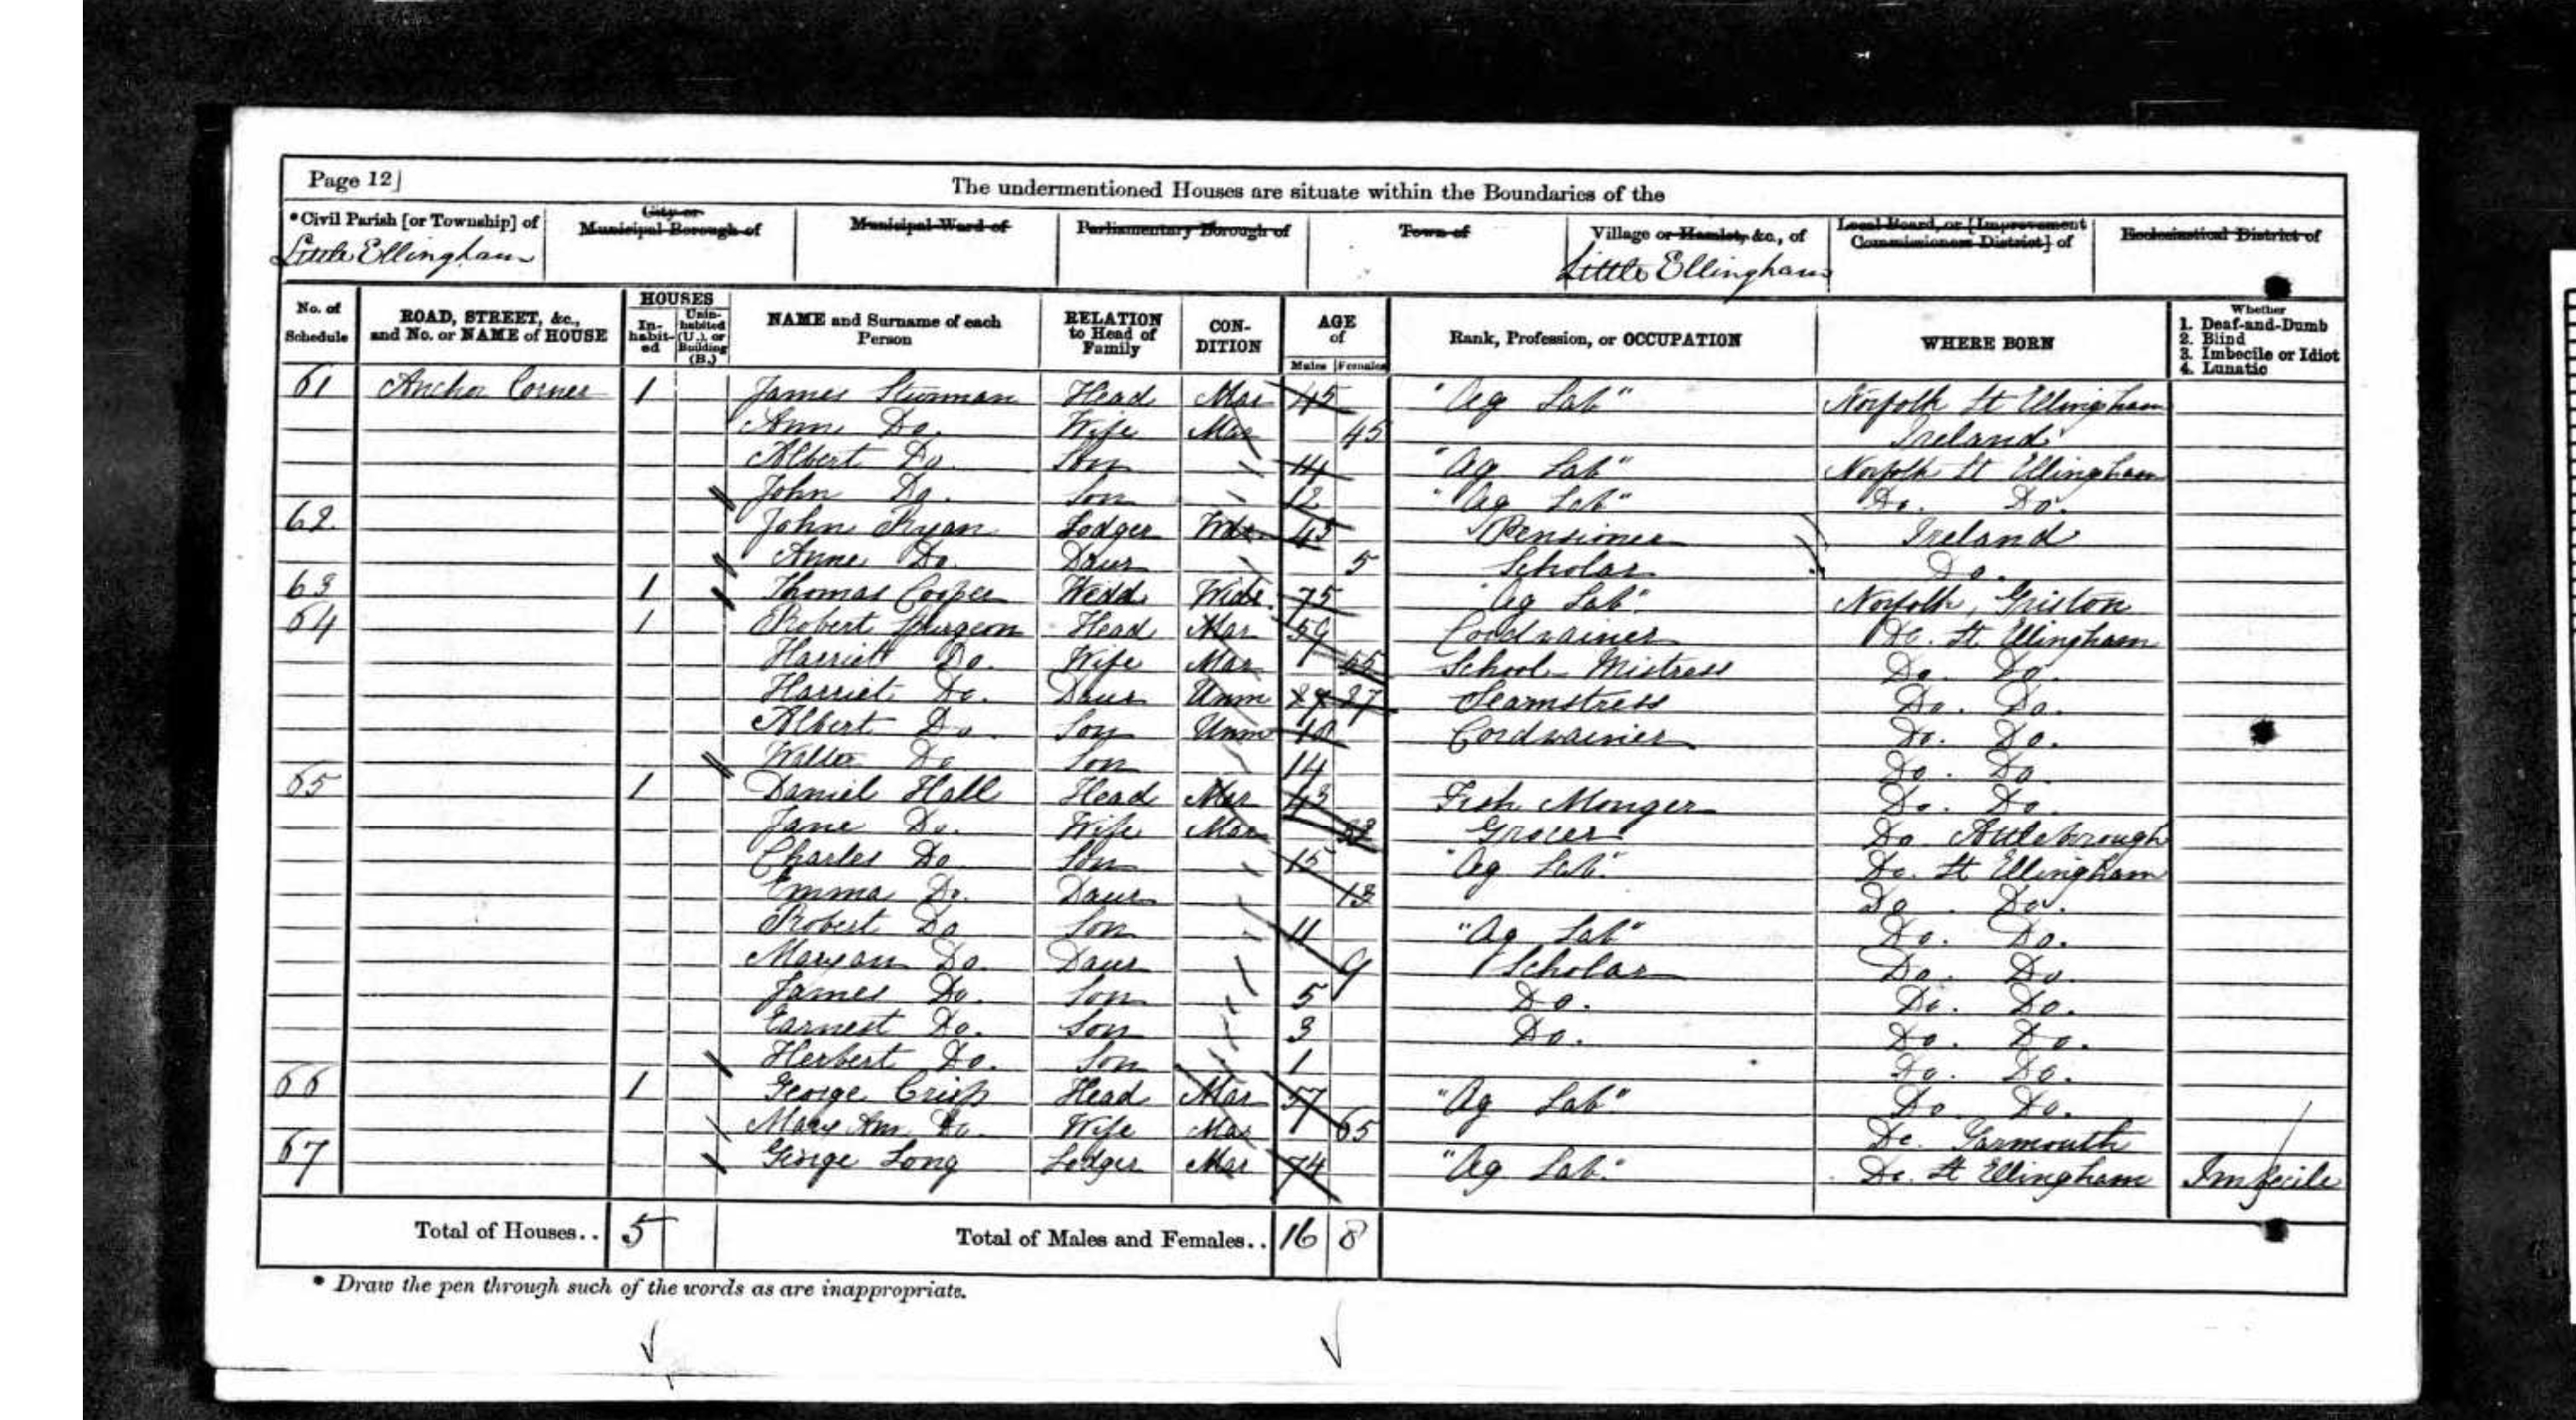 Page 12]
The undermentioned Houses are situate within the Boundaries of the
*Civil Parish [or Township] of
City or Municipal Borough of
Municipal Ward of
Parliamentary Borough of
Town of
Village or Hamlet, &c., of
Local Board, or [Improvement Commissioners District] of
Ecclesiastical District of
Little Ellingham
Little Ellingham
No. of Schedule
ROAD, STREET, &c., and No. or NAME of HOUSE
HOUSES
In-habit-ed
Unin-habited (U.), or Building (B.)
NAME and Surname of each Person
RELATION to Head of Family
CON-DITION
AGE of
Males Females
Rank, Profession, or OCCUPATION
WHERE BORN
Whether
1. Deaf-and-Dumb
2. Blind
3. Imbecile or Idiot
4. Lunatic
61 Anchor Corner 1 James Sturman Head Mar 45 "Ag Lab" Norfolk Lt Ellingham
Ann Do. Wife Mar 45 Ireland
Albert Do Son 14 "Ag Lab" Norfolk Lt Ellingham
John Do. Son 12 "Ag Lab" Do. Do.
62 John Ryan Lodger Wdr 45 Pensioner Ireland
Anne Do. Daur 5 Scholar Do.
63 1 Thomas Cooper Widr. 75 "Ag Lab" Norfolk, Griston
64 1 Robert Spurgeon Head Mar 59 Cordwainer Do. Lt Ellingham
Harriet Do. Wife Mar 55 School Mistress Do. Do.
Harriet Do. Daur Unm 27 27 Seamstress Do. Do.
Albert Do. Son Unm Cordwainer Do. Do.
Do Son 14 Do. Do
65 1 Daniel Hall Head Mar 43 Fish Monger Do. Do.
Jane Do. Wife Mar Grocer Do Attleborough
Charles Do Son 15 "Ag Lab." Do. Lt Ellingham
Emma Do. Daur 13 Do. Do.
Robert Do Son 11 "Ag Lab" Do. Do.
Maryan Do. Daur 9 Scholar Do. Do.
James Do. Son 5 Do. Do. Do.
Earnest Do. Son 3 Do. Do. Do.
Herbert Do. Son 1 Do. Do.
66 1 George Crisp Head Mar 57 "Ag Lab" Do. Do.
Mary Ann Do. Wife Mar 65 Do. Yarmouth
67 George Long Lodger Mar 74 "Ag Lab." Do. Lt Ellingham Imbecile
Total of Houses.. 5 Total of Males and Females.. 16 8
* Draw the pen through such of the words as are inappropriate.